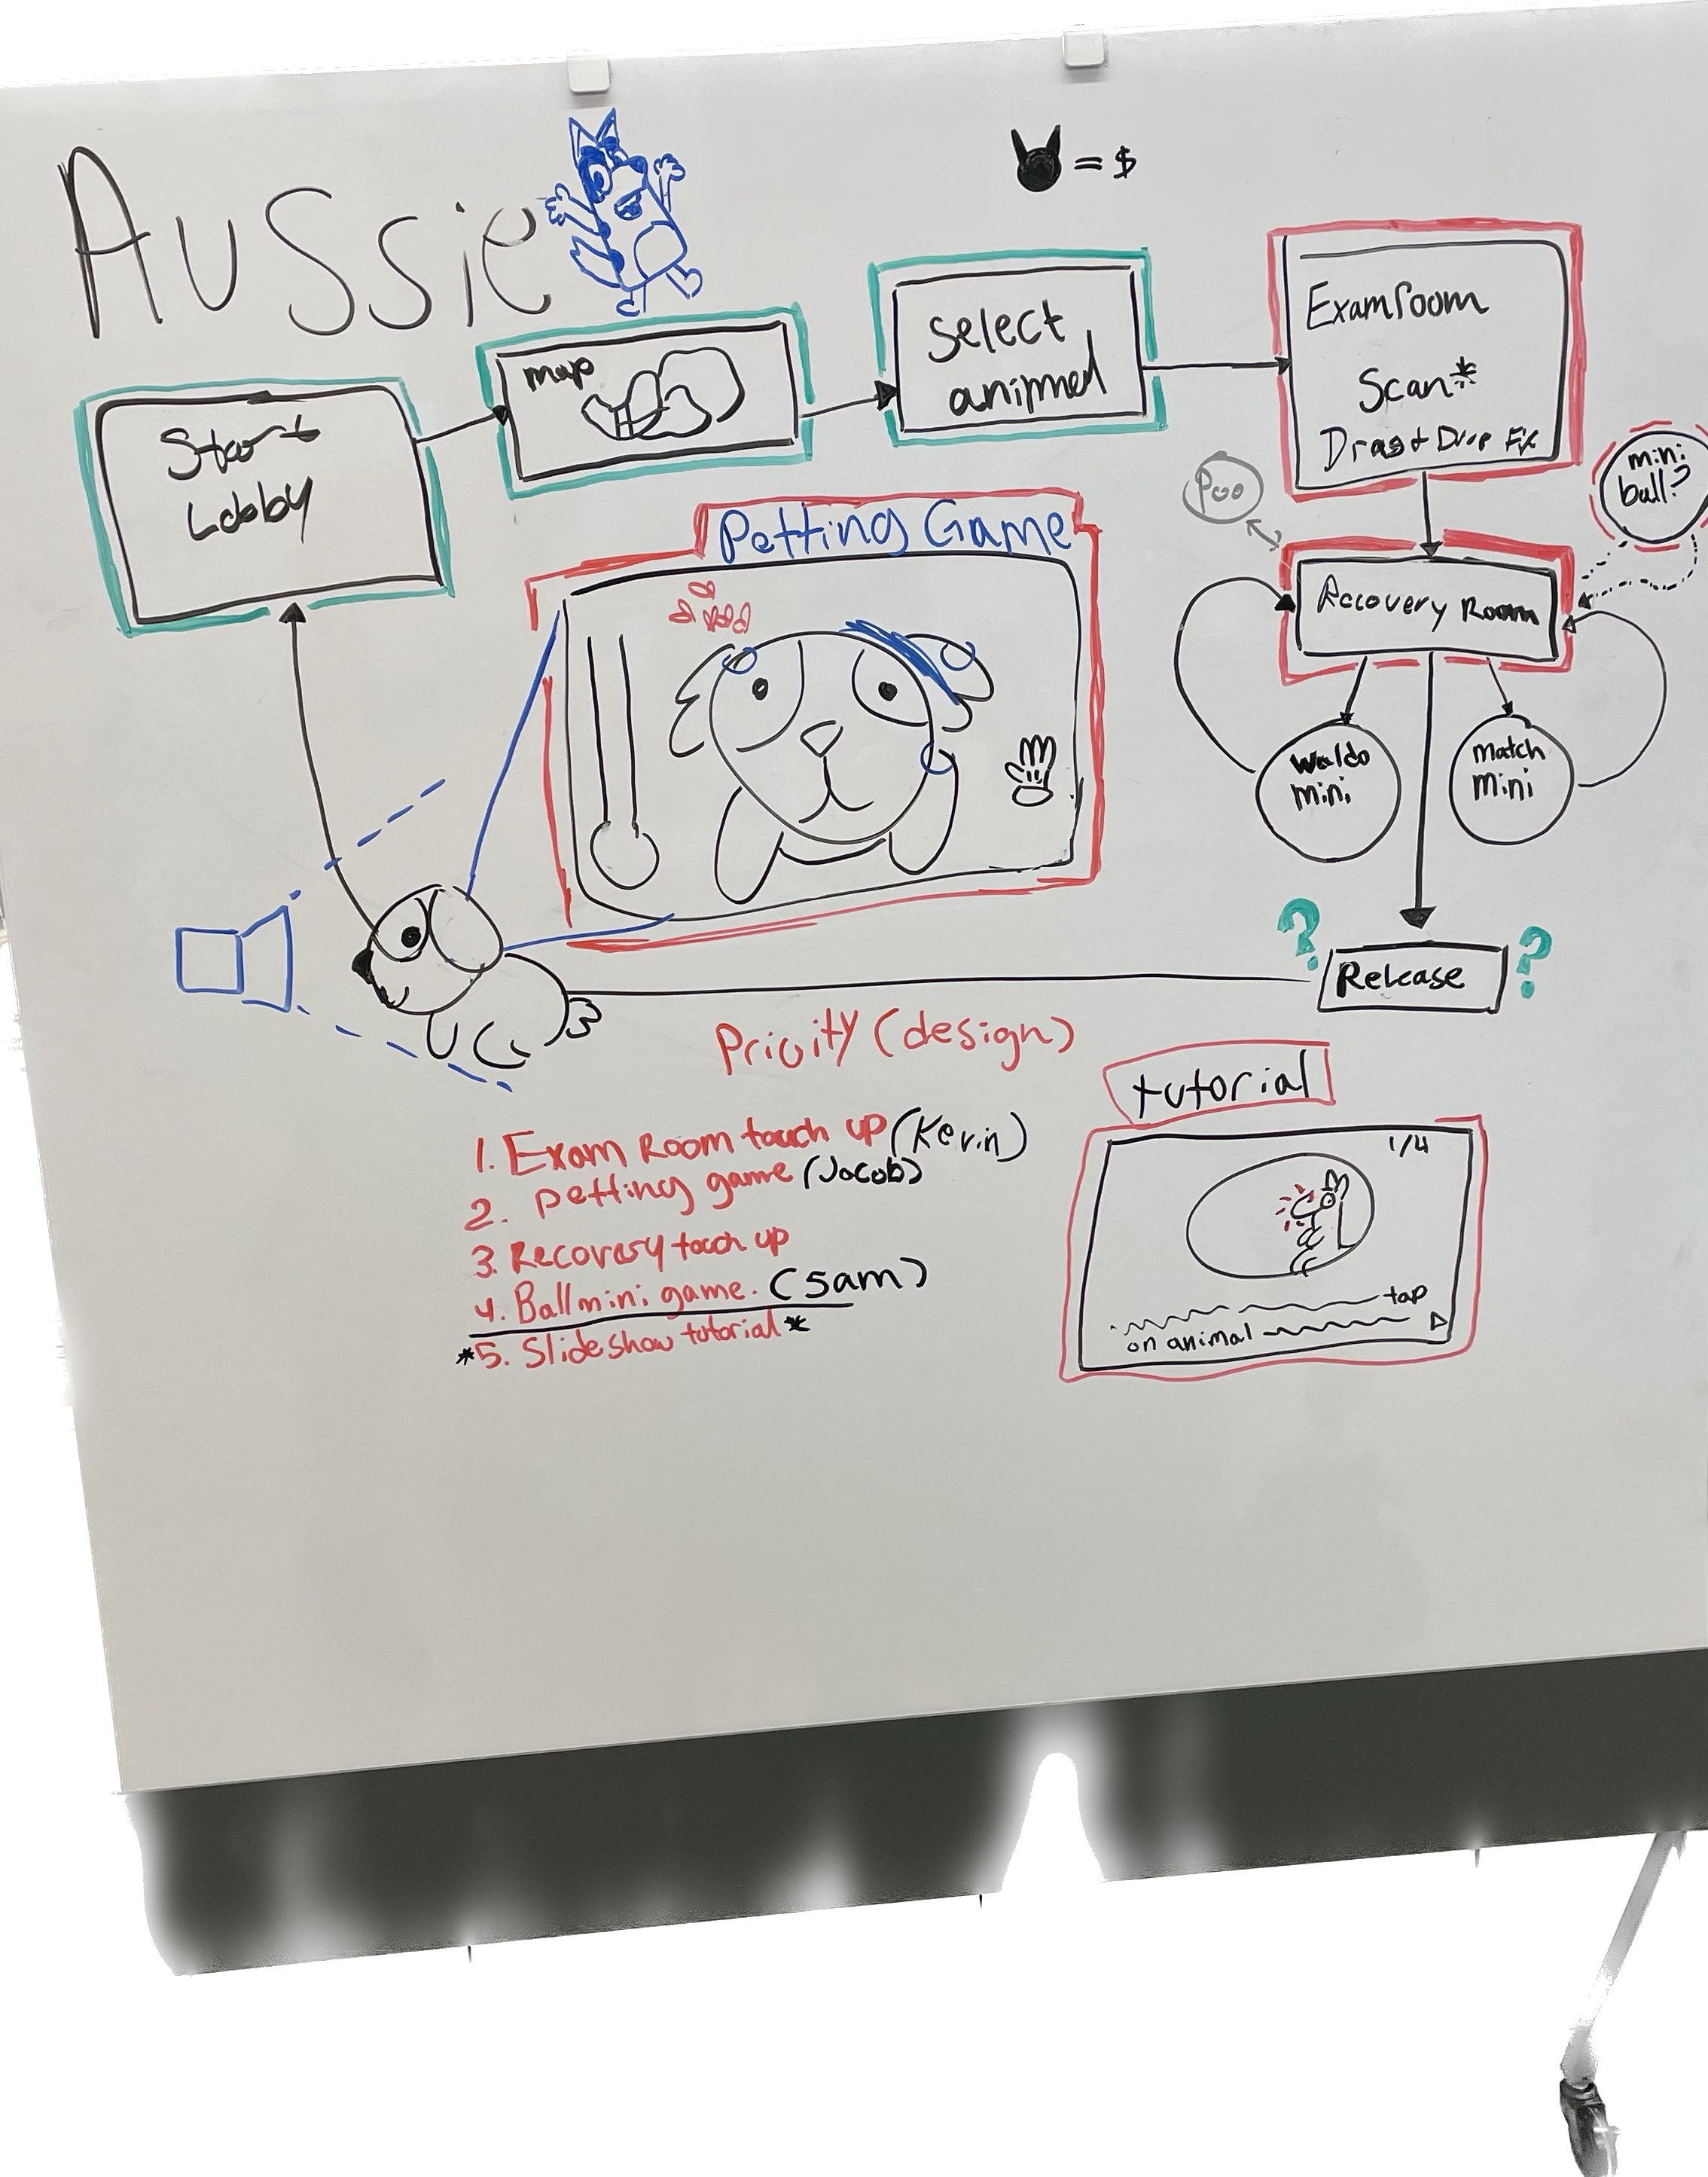 Aussie
= $
Start
Lobby
map
Select
animal
Exam room
Scan*
Drag & Drop Fix
Poo
mini
ball?
Petting Game
Recovery Room
Waldo
mini
Match
mini
? Release ?
Prioity (design)
1. Exam Room touch up (Kevin)
2. petting game (Jacob)
3. Recovery touch up
4. Ball mini game. (Sam)
*5. Slide show tutorial*
tutorial
1/4
tap
on animal